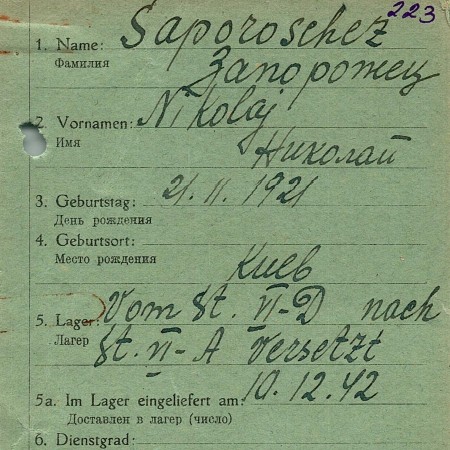 223
1. Name: Saporoschez
Фамилия Запорожец
2. Vornamen: Nikolaj
Имя Николай
3. Geburtstag: 21.11.1921
День рождения
4. Geburtsort:
Место рождения Киев
5. Lager: Vom St. VI-D nach
Лагерь St. VI-A versetzt
5a. Im Lager eingeliefert am: 10.12.42
Доставлен в лагерь (число)
6. Dienstgrad: